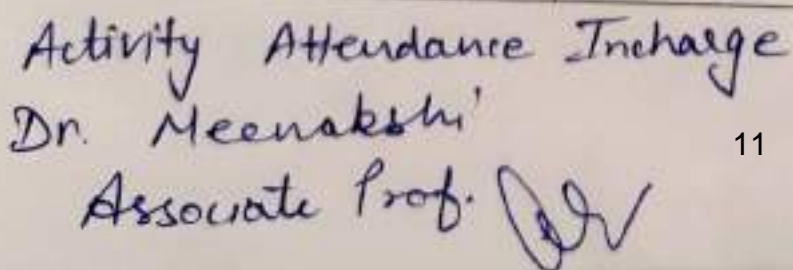 Activity Attendance Incharge
Dr. Meenakshi
11
Associate Prof.